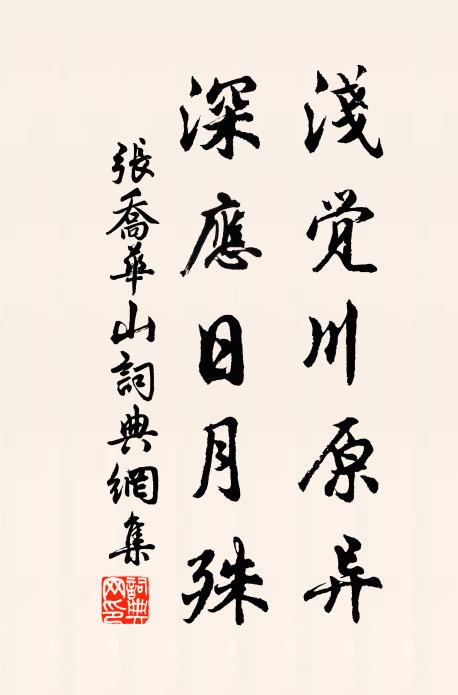 淺覚川原异
深應日月殊
張喬華山詞典網集
詞典网印